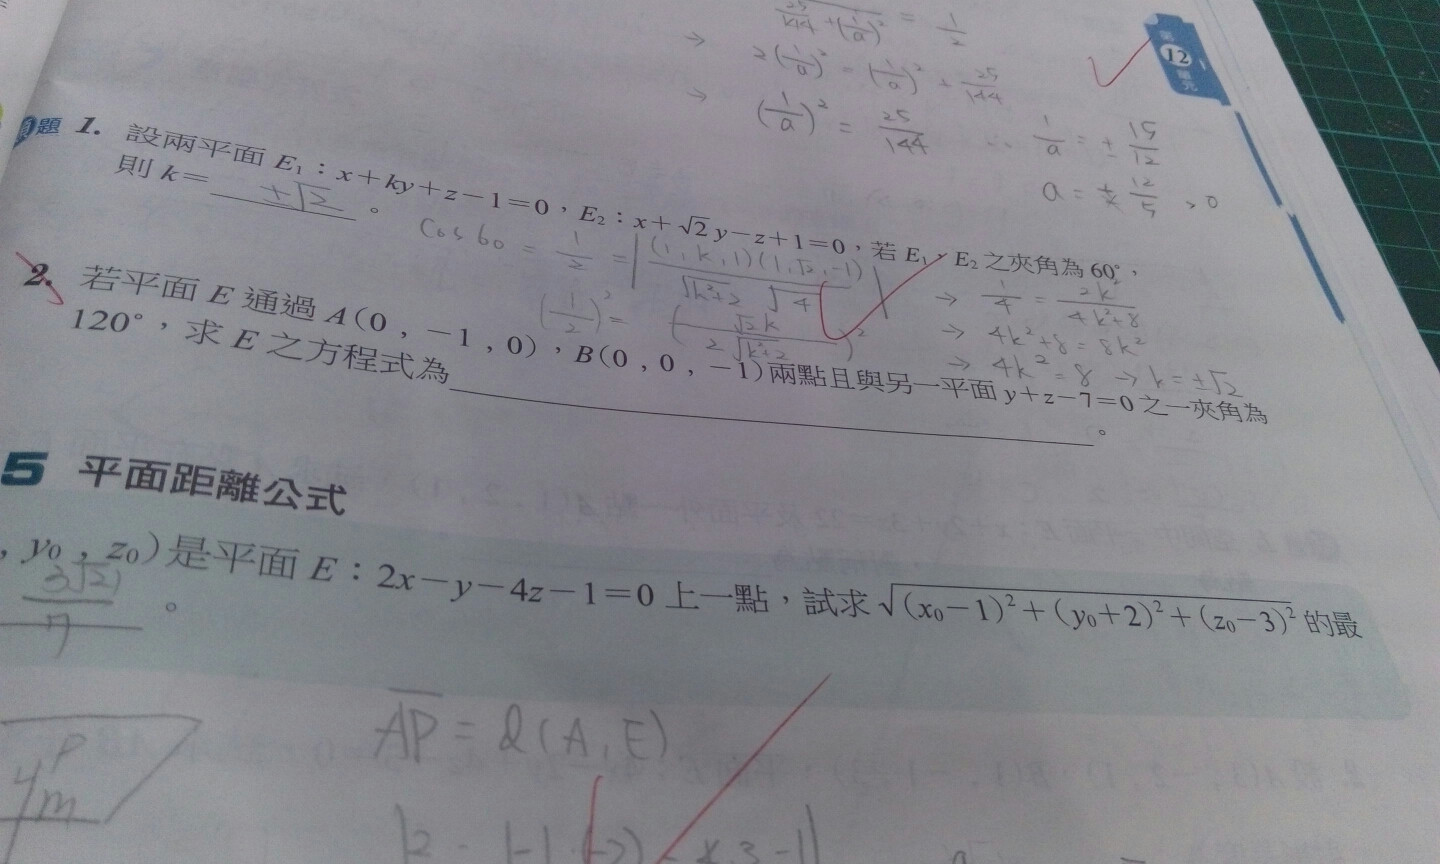 25/144 + (1/a)² = 1/2
第
12
單元
→ 2(1/a)² = (1/a)² + 25/144
→ (1/a)² = 25/144 ∴ 1/a = ± 15/12
a = ± 12/5 , 0
題 1. 設兩平面 E₁：x＋ky＋z－1＝0，E₂：x＋√2y－z＋1＝0，若 E₁、E₂ 之夾角為 60°，
則 k＝ ±√2 。
cos 60 = 1/2 = |(1,k,1)(1,√2,-1) / √k²+2 √4|
(1/2)² = (√2k / 2√k²+2)²
→ 1/4 = 2k² / 4k²+8
→ 4k²+8 = 8k²
→ 4k² = 8 → k = ±√2
2. 若平面 E 通過 A(0，－1，0)，B(0，0，－1)兩點且與另一平面 y＋z－7＝0 之一夾角為
120°，求 E 之方程式為 。
5 平面距離公式
，y₀，z₀)是平面 E：2x－y－4z－1＝0 上一點，試求 √(x₀－1)²＋(y₀＋2)²＋(z₀－3)² 的最
3√21 / 7 。
P
m
AP = d(A,E)